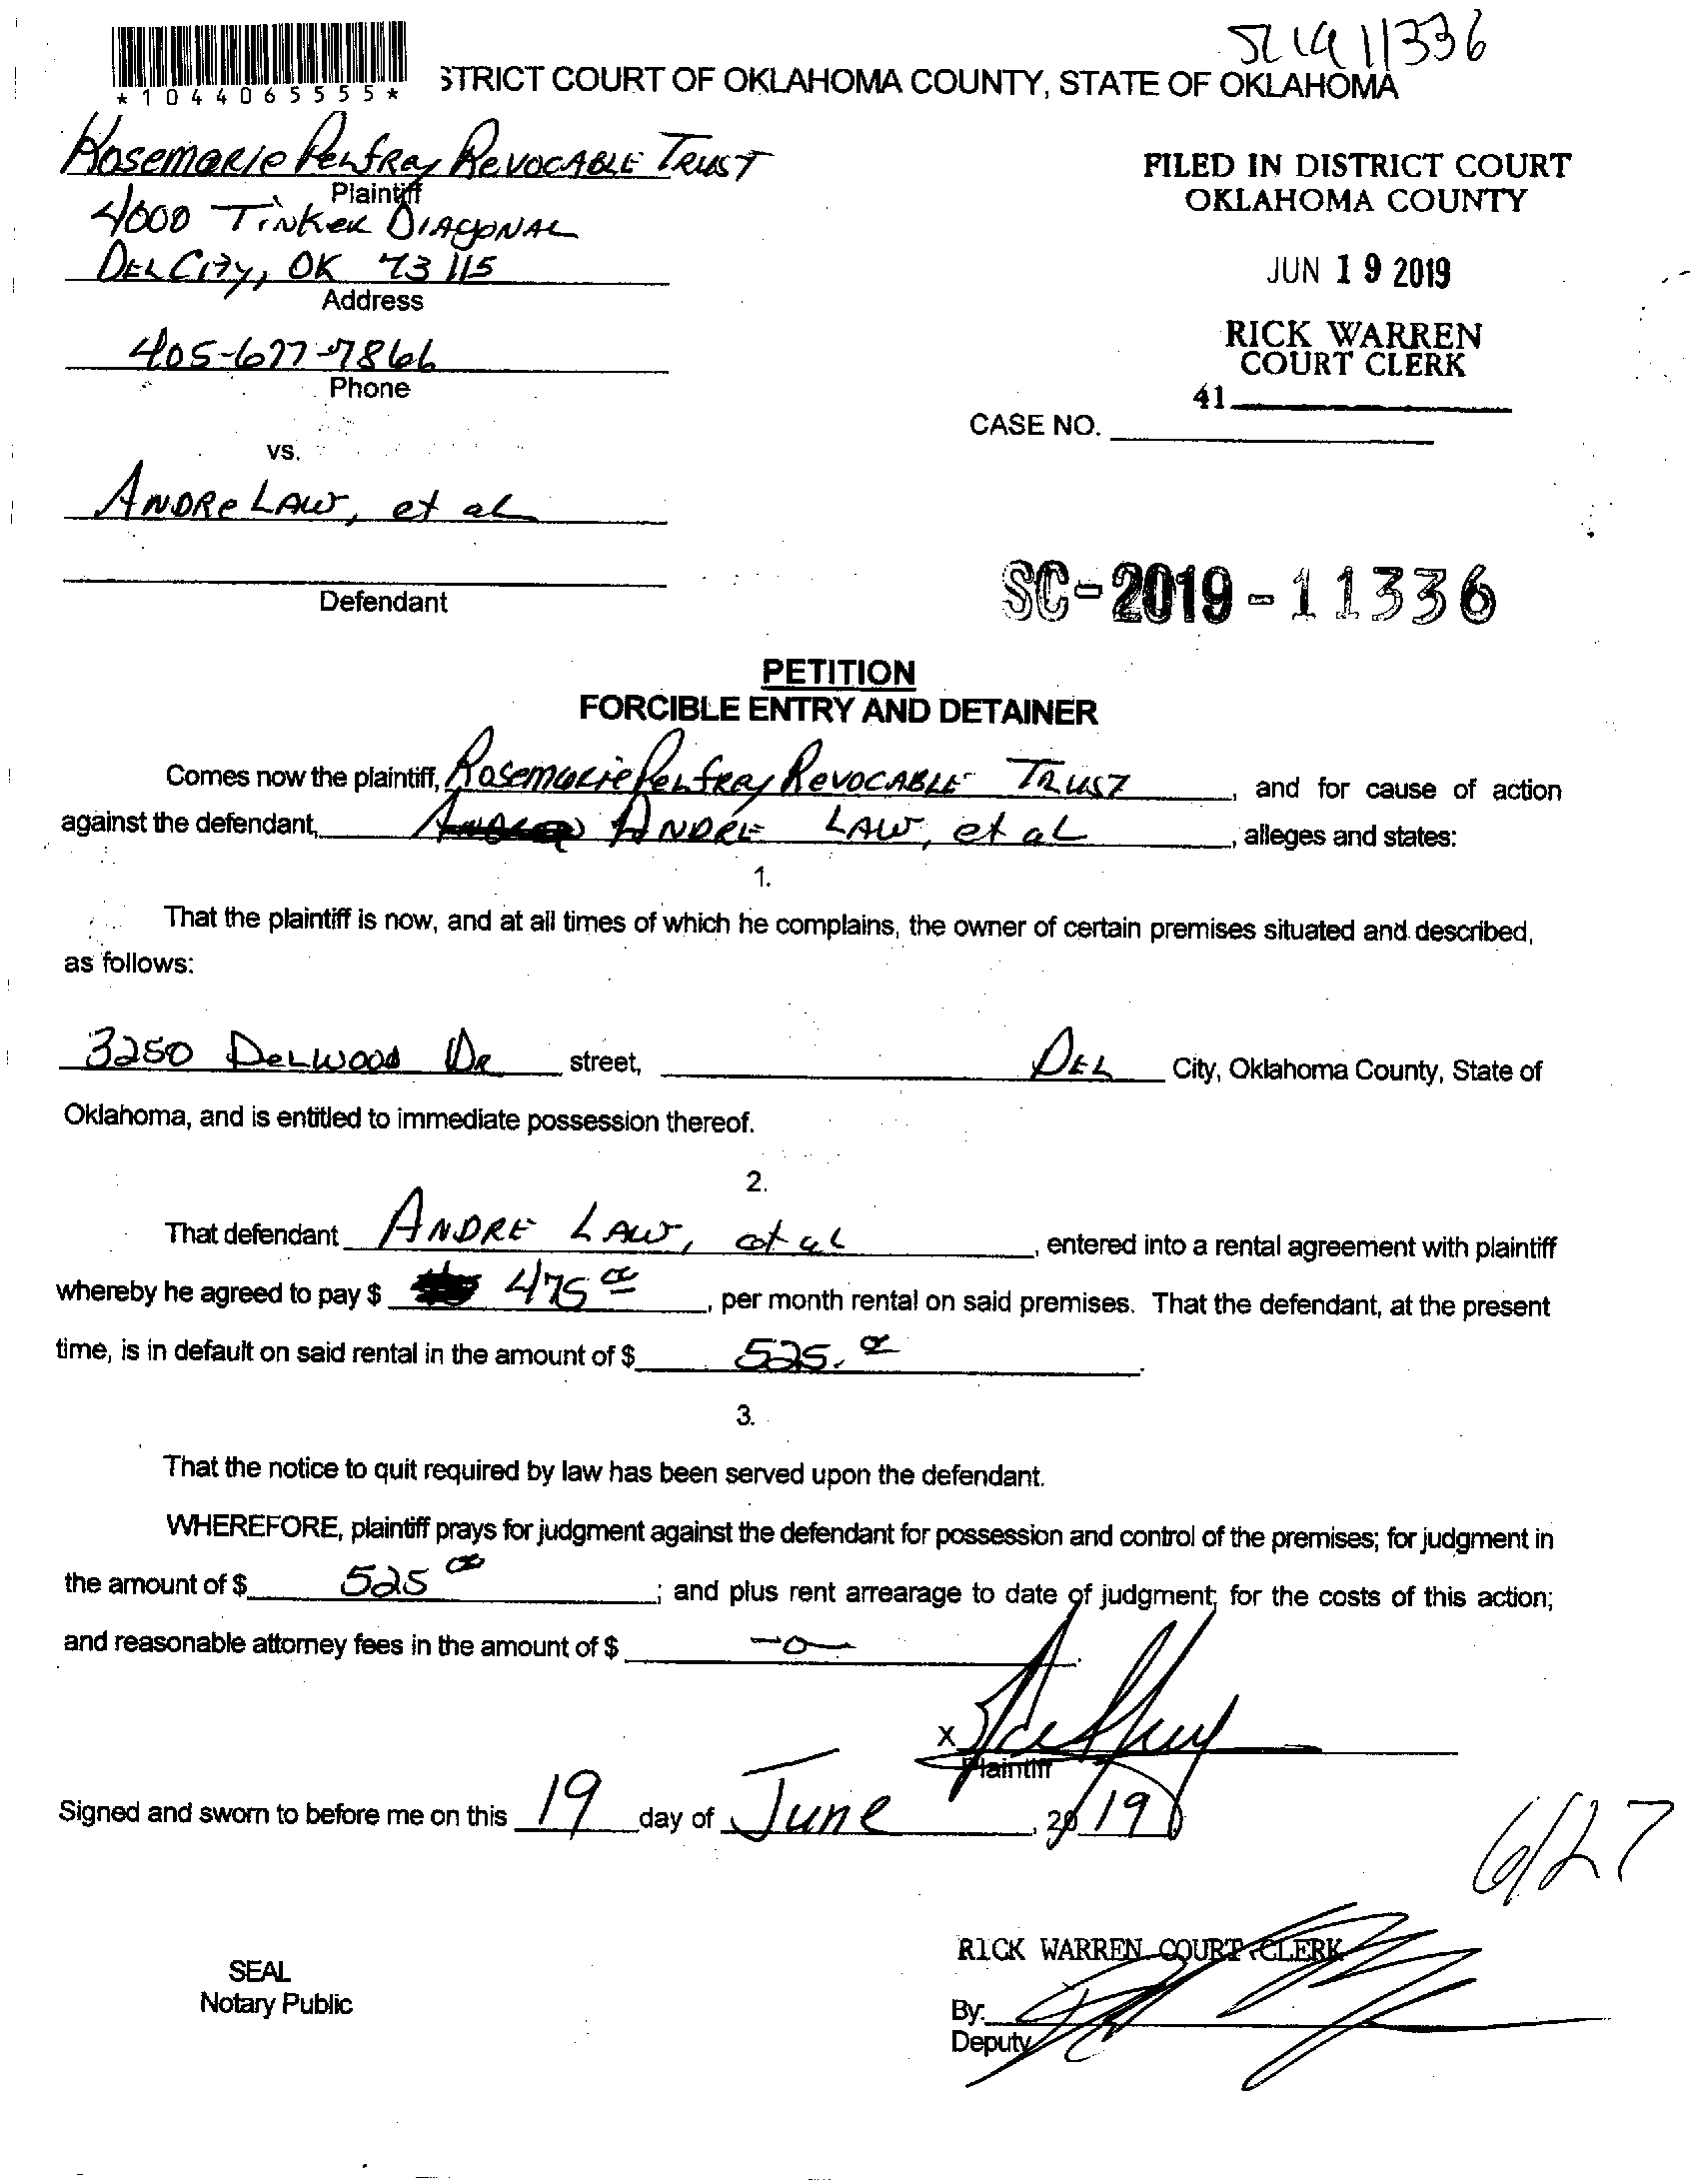 SC19 11336
*1044065555*
STRICT COURT OF OKLAHOMA COUNTY, STATE OF OKLAHOMA
Rosemarie Penfray Revocable Trust
Plaintiff
4000 Tinker Diagonal
Del City, OK 73115
Address
405-677-7866
Phone
FILED IN DISTRICT COURT
OKLAHOMA COUNTY
JUN 19 2019
RICK WARREN
COURT CLERK
41
CASE NO.
vs.
Andre Law, et al
Defendant
SC-2019-11336
PETITION
FORCIBLE ENTRY AND DETAINER
Comes now the plaintiff, Rosemarie Penfray Revocable Trust, and for cause of action
against the defendant, Andre Law, et al, alleges and states:
1.
That the plaintiff is now, and at all times of which he complains, the owner of certain premises situated and described,
as follows:
3250 Delwood Dr street, Del City, Oklahoma County, State of
Oklahoma, and is entitled to immediate possession thereof.
2.
That defendant Andre Law, et al, entered into a rental agreement with plaintiff
whereby he agreed to pay $ 475 00, per month rental on said premises. That the defendant, at the present
time, is in default on said rental in the amount of $ 525. 00.
3.
That the notice to quit required by law has been served upon the defendant.
WHEREFORE, plaintiff prays for judgment against the defendant for possession and control of the premises; for judgment in
the amount of $ 525 00; and plus rent arrearage to date of judgment; for the costs of this action;
and reasonable attorney fees in the amount of $ -0-.
X
Plaintiff
Signed and sworn to before me on this 19 day of June, 2019
6/27
RICK WARREN COURT CLERK
SEAL
Notary Public
By:
Deputy